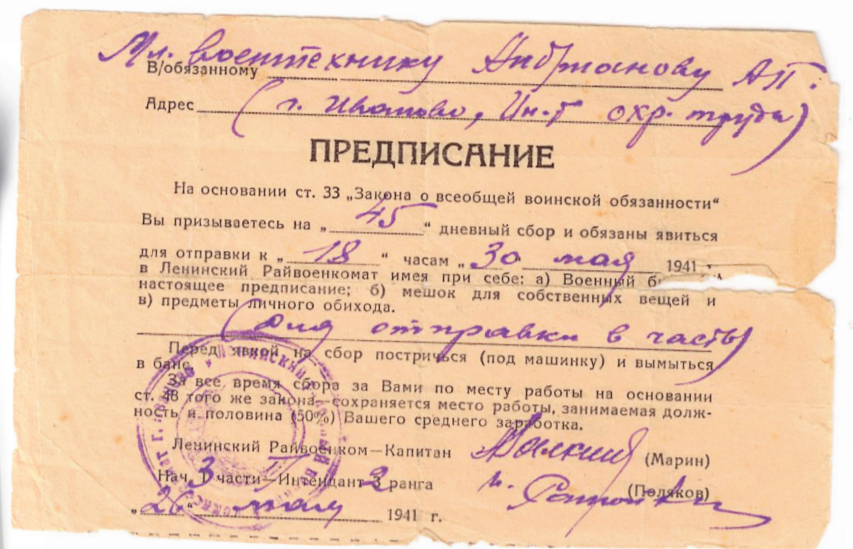 Мл. воентехнику Андрианову А.П.
В/обязанному
Адрес (г. Иваново, Ин-т охр. труда)
ПРЕДПИСАНИЕ
На основании ст. 33 „Закона о всеобщей воинской обязанности“
Вы призываетесь на „45“ дневный сбор и обязаны явиться
для отправки к „18“ часам „30 мая 1941
в Ленинский Райвоенкомат имея при себе: а) Военный
настоящее предписание; б) мешок для собственных вещей и
в) предметы личного обихода.
(для отправки в часть)
Перед явкой на сбор постричься (под машинку) и вымыться
в бане.
За все время сбора за Вами по месту работы на основании
ст. 38 того же закона, сохраняется место работы, занимаемая долж-
ность и половина (50%) Вашего среднего заработка.
Ленинский Райвоенком—Капитан (Марин)
Нач. 3 части—Интендант 3 ранга (Поляков)
„26“ мая 1941 г.